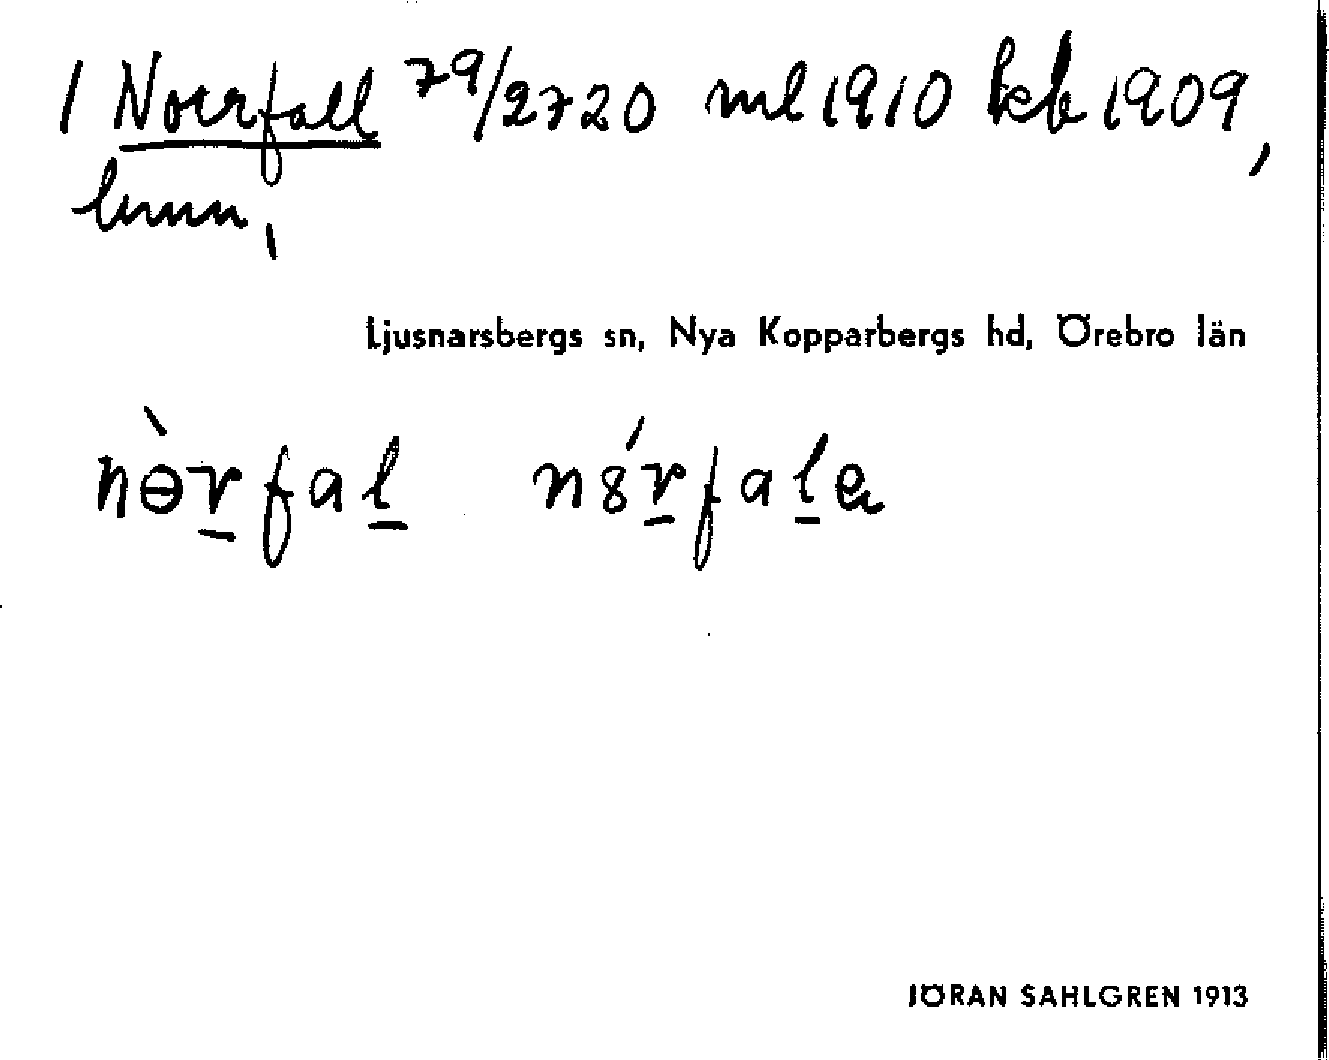 1 Norrfall 79/2720 ml 1910 kb 1909,
hmn,
Ljusnarsbergs sn, Nya Kopparbergs hd, Örebro län
nɵ̀r̲fal̲ n8́r̲fal̲a
JÖRAN SAHLGREN 1913